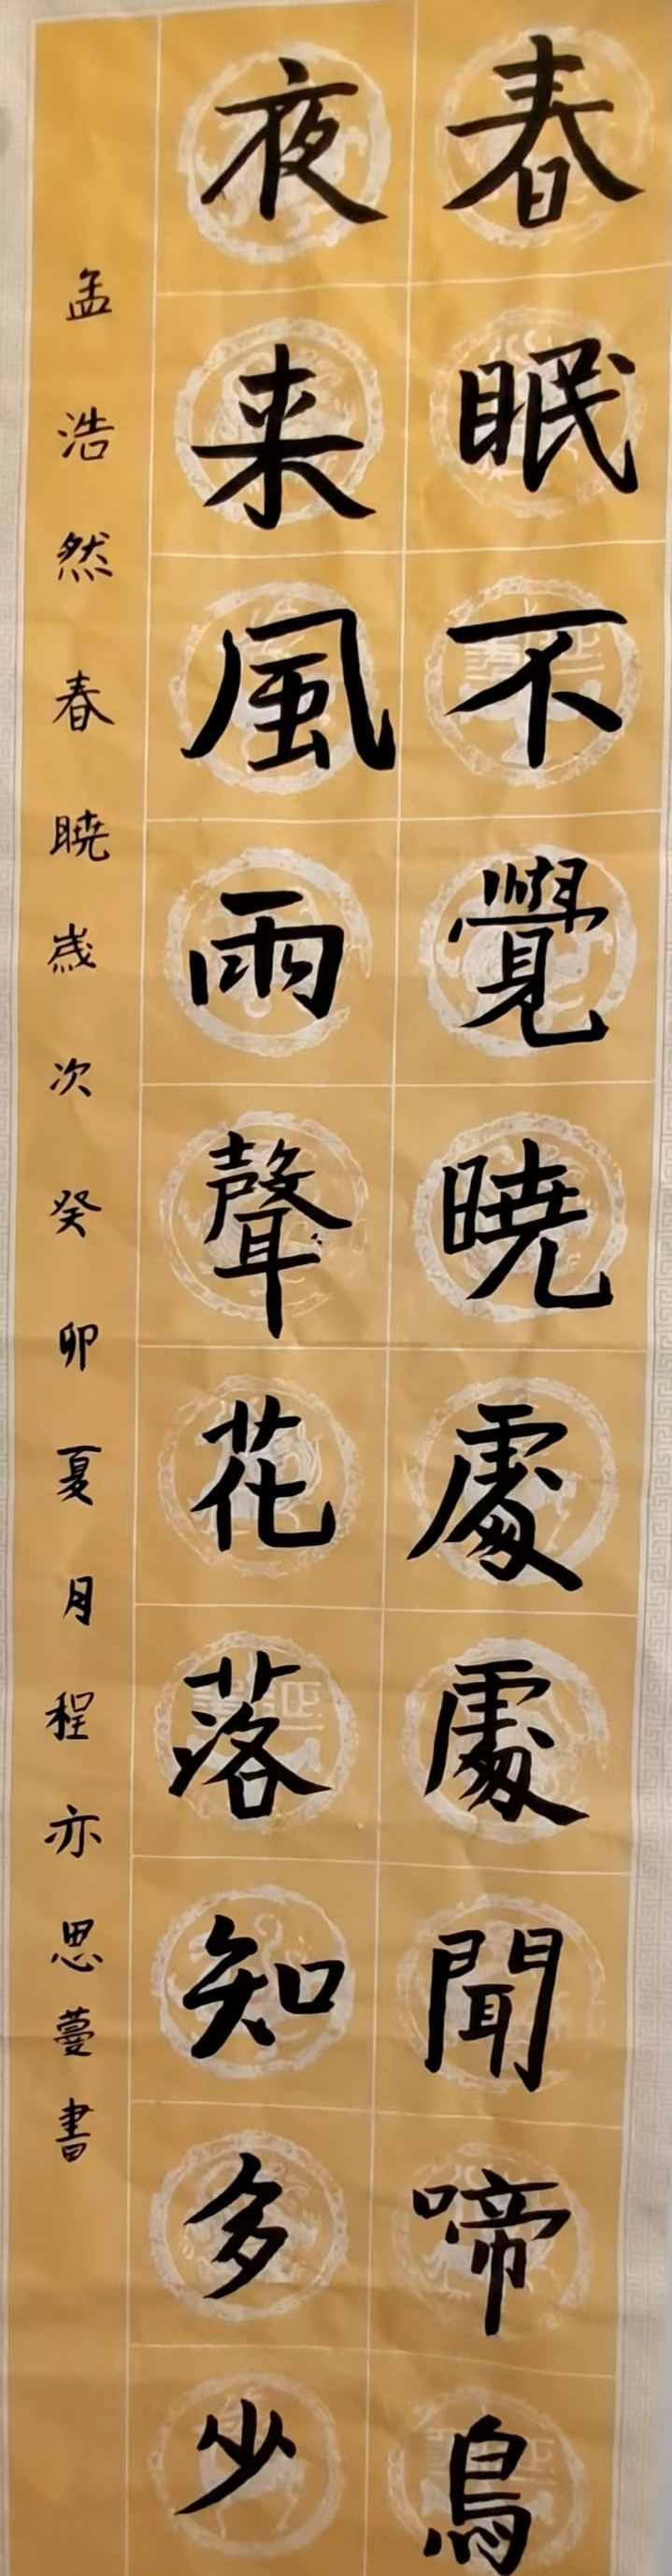 春眠不覺曉處處聞啼鳥
夜来風雨聲花落知多少
孟浩然春曉歲次癸卯夏月程亦思蔓書